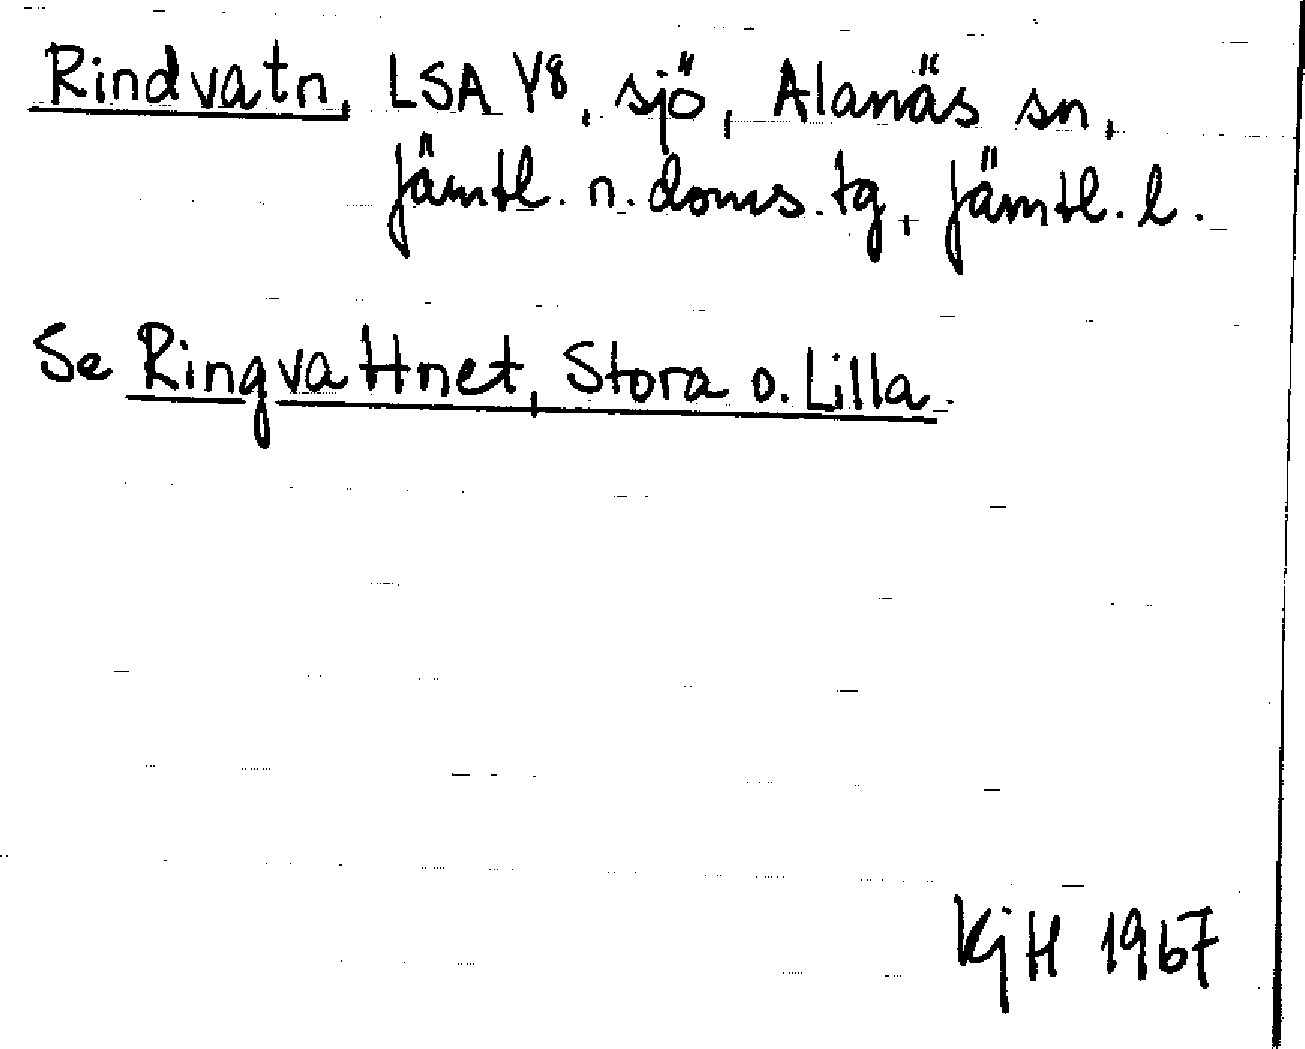 Rindvatn, LSA Y8, sjö, Alanäs sn,
Jämtl. n. doms. tg, Jämtl. l.
Se Ringvattnet, Stora o. Lilla.
KjH 1967